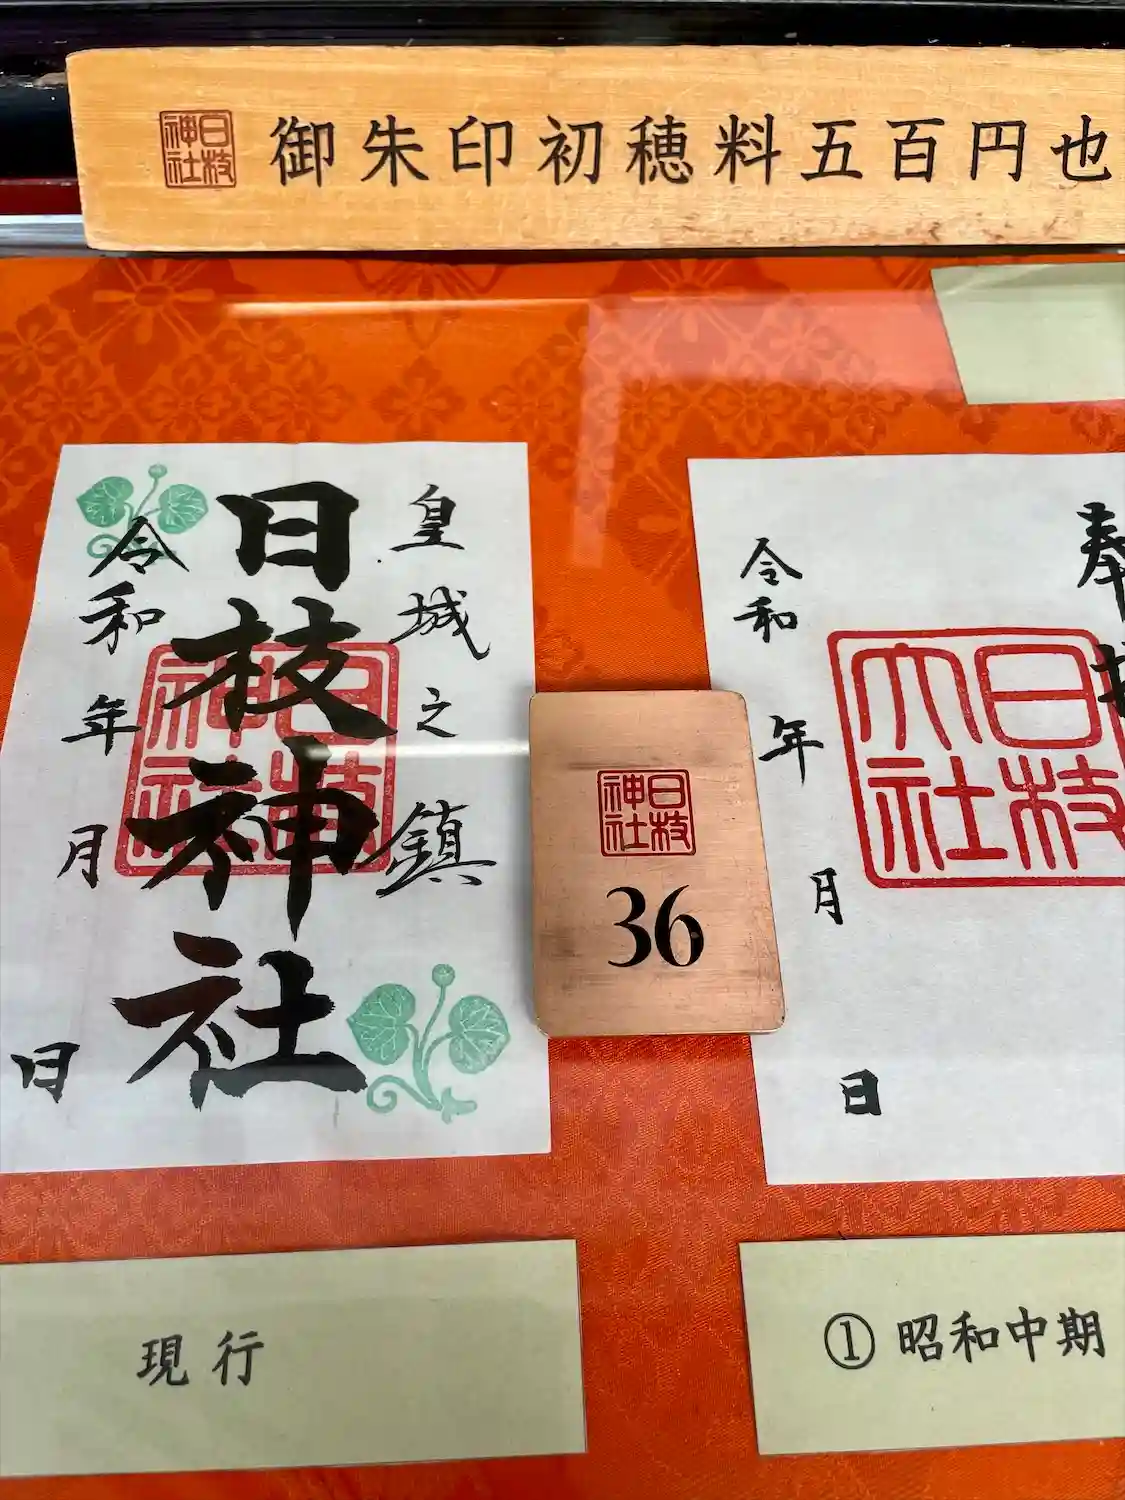 日枝神社
御朱印初穂料五百円也
皇城之鎮
日枝神社
令和 年 月 日
日枝神社
日枝神社
36
奉
日枝大社
令和 年 月 日
現行
① 昭和中期